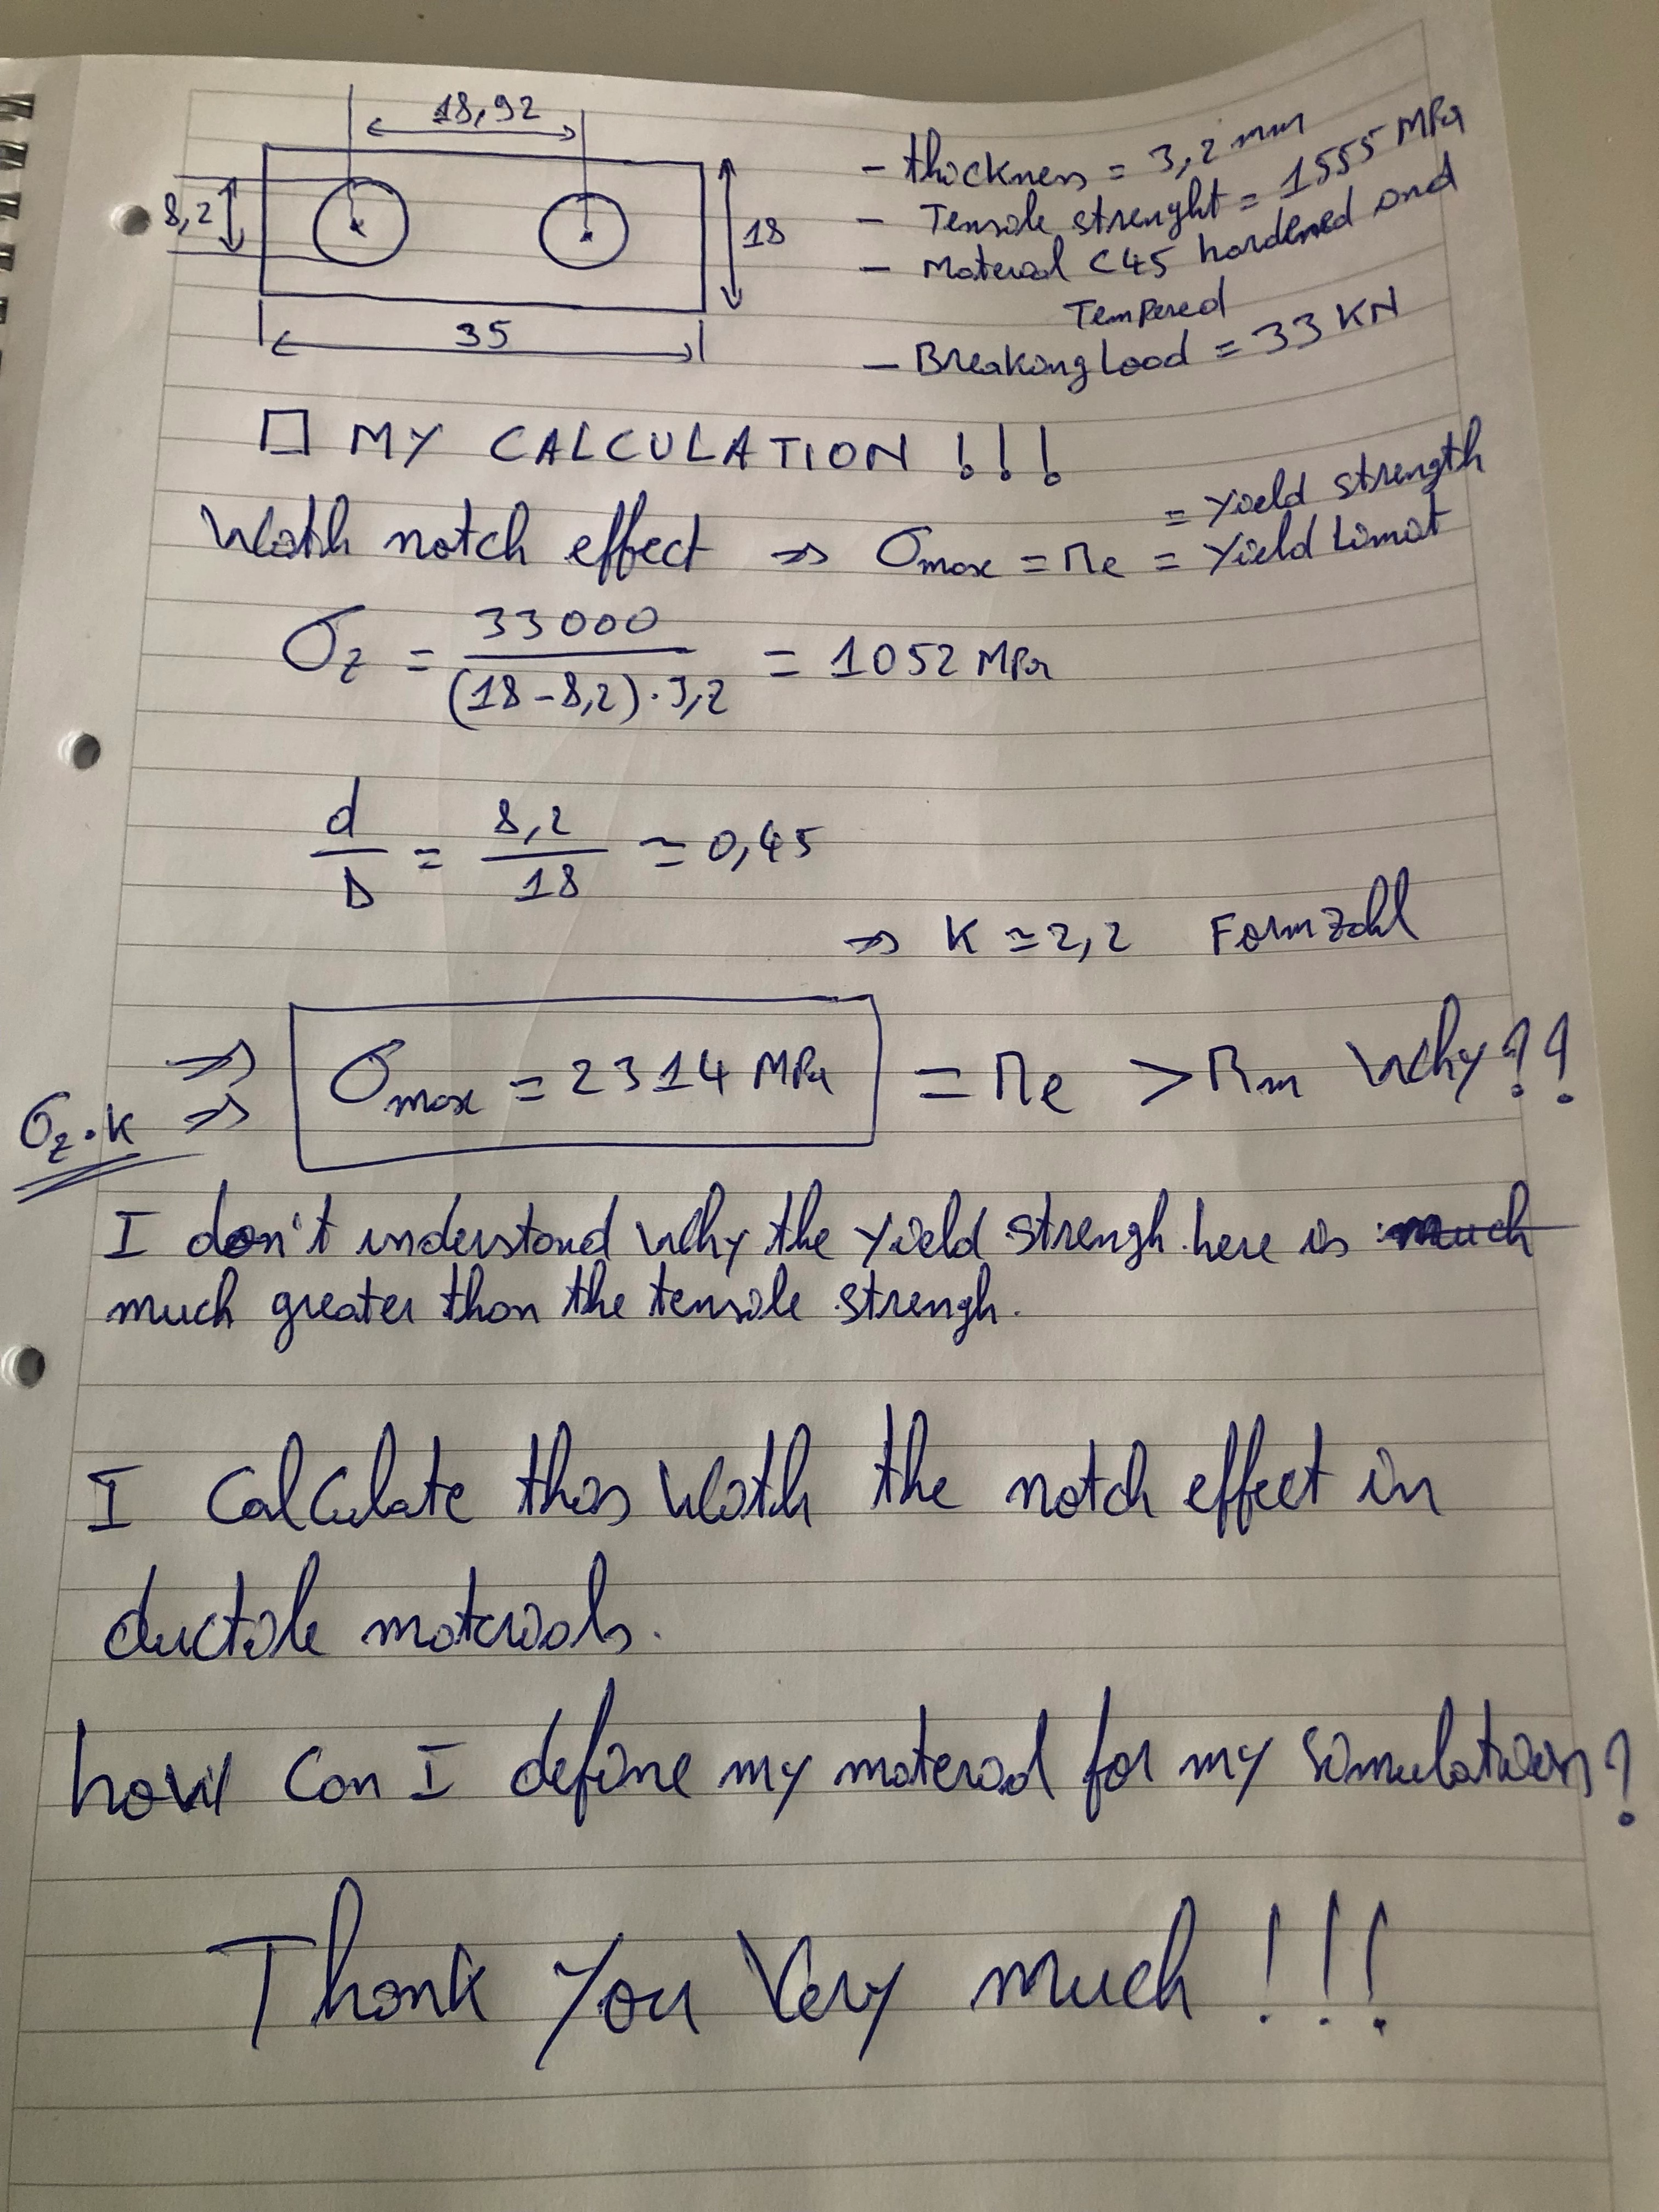 18,92
8,2
18
35
- thickness = 3,2 mm
- Tensile strenght = 1555 MPa
- Material C45 hardened and
Tempered
- Breaking Load = 33 KN
□ MY CALCULATION !!!
With notch effect => σmax = Re = Yield Limit
= Yield strength
σz = 33000 / (18-8,2)·3,2 = 1052 MPa
d/D = 8,2/18 ≃ 0,45
=> K ≃ 2,2 Formzahl
=> σmax = 2314 MPa = Re > Rm Why??
σz·K =>
I don't understand why the yield strengh here is much
much greater than the tensile strengh.
I calculate this with the notch effect in
ductile materials.
how can I define my material for my simulation?
Thank you very much !!!